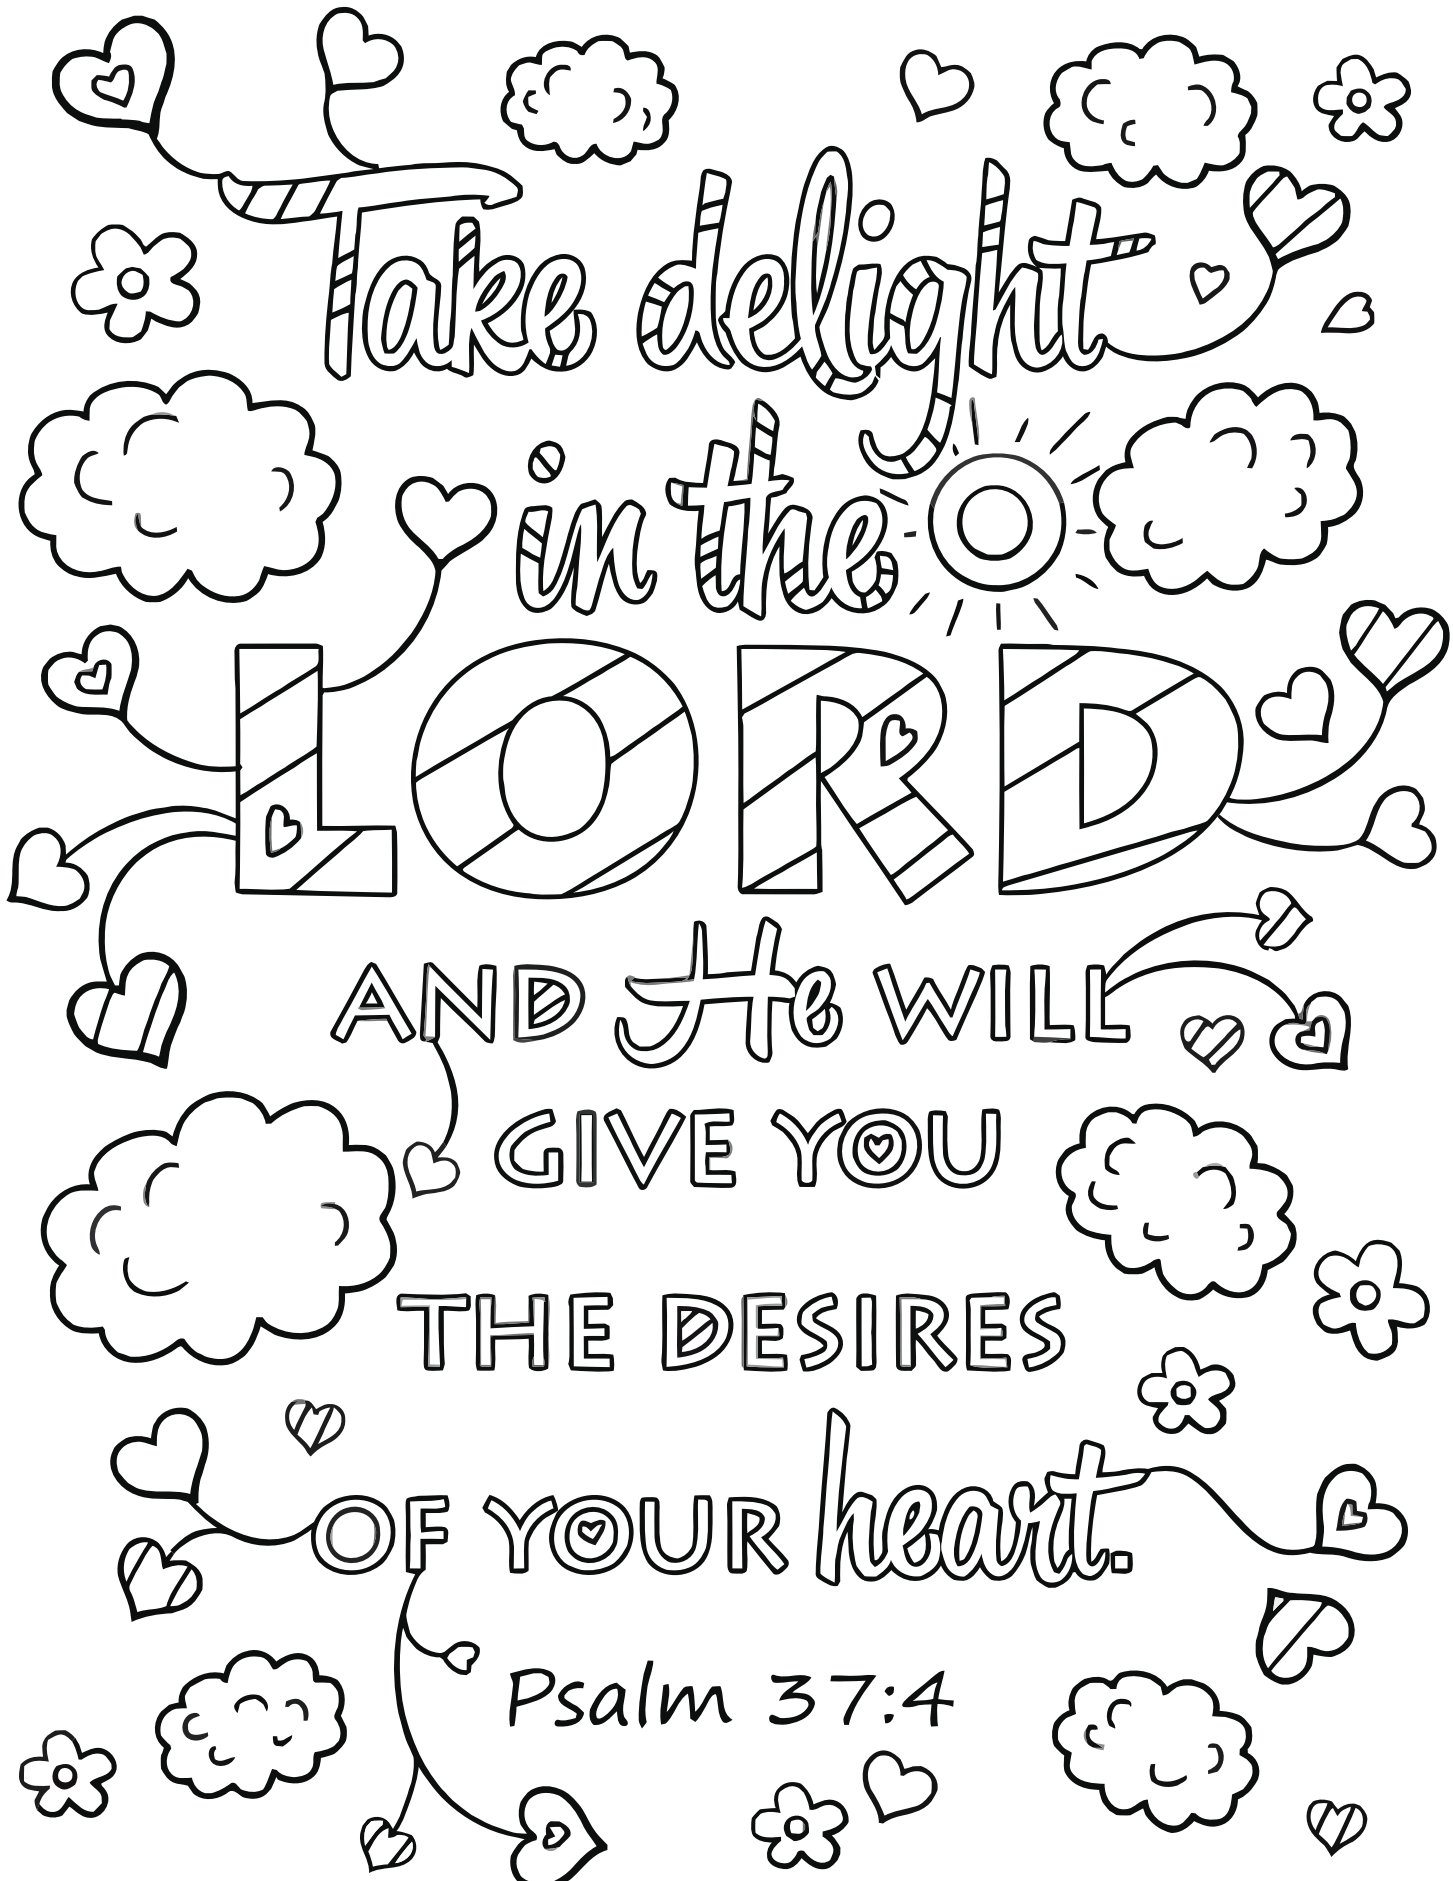 Take delight
in the
LORD
AND He WILL
GIVE YOU
THE DESIRES
OF YOUR heart.
Psalm 37:4